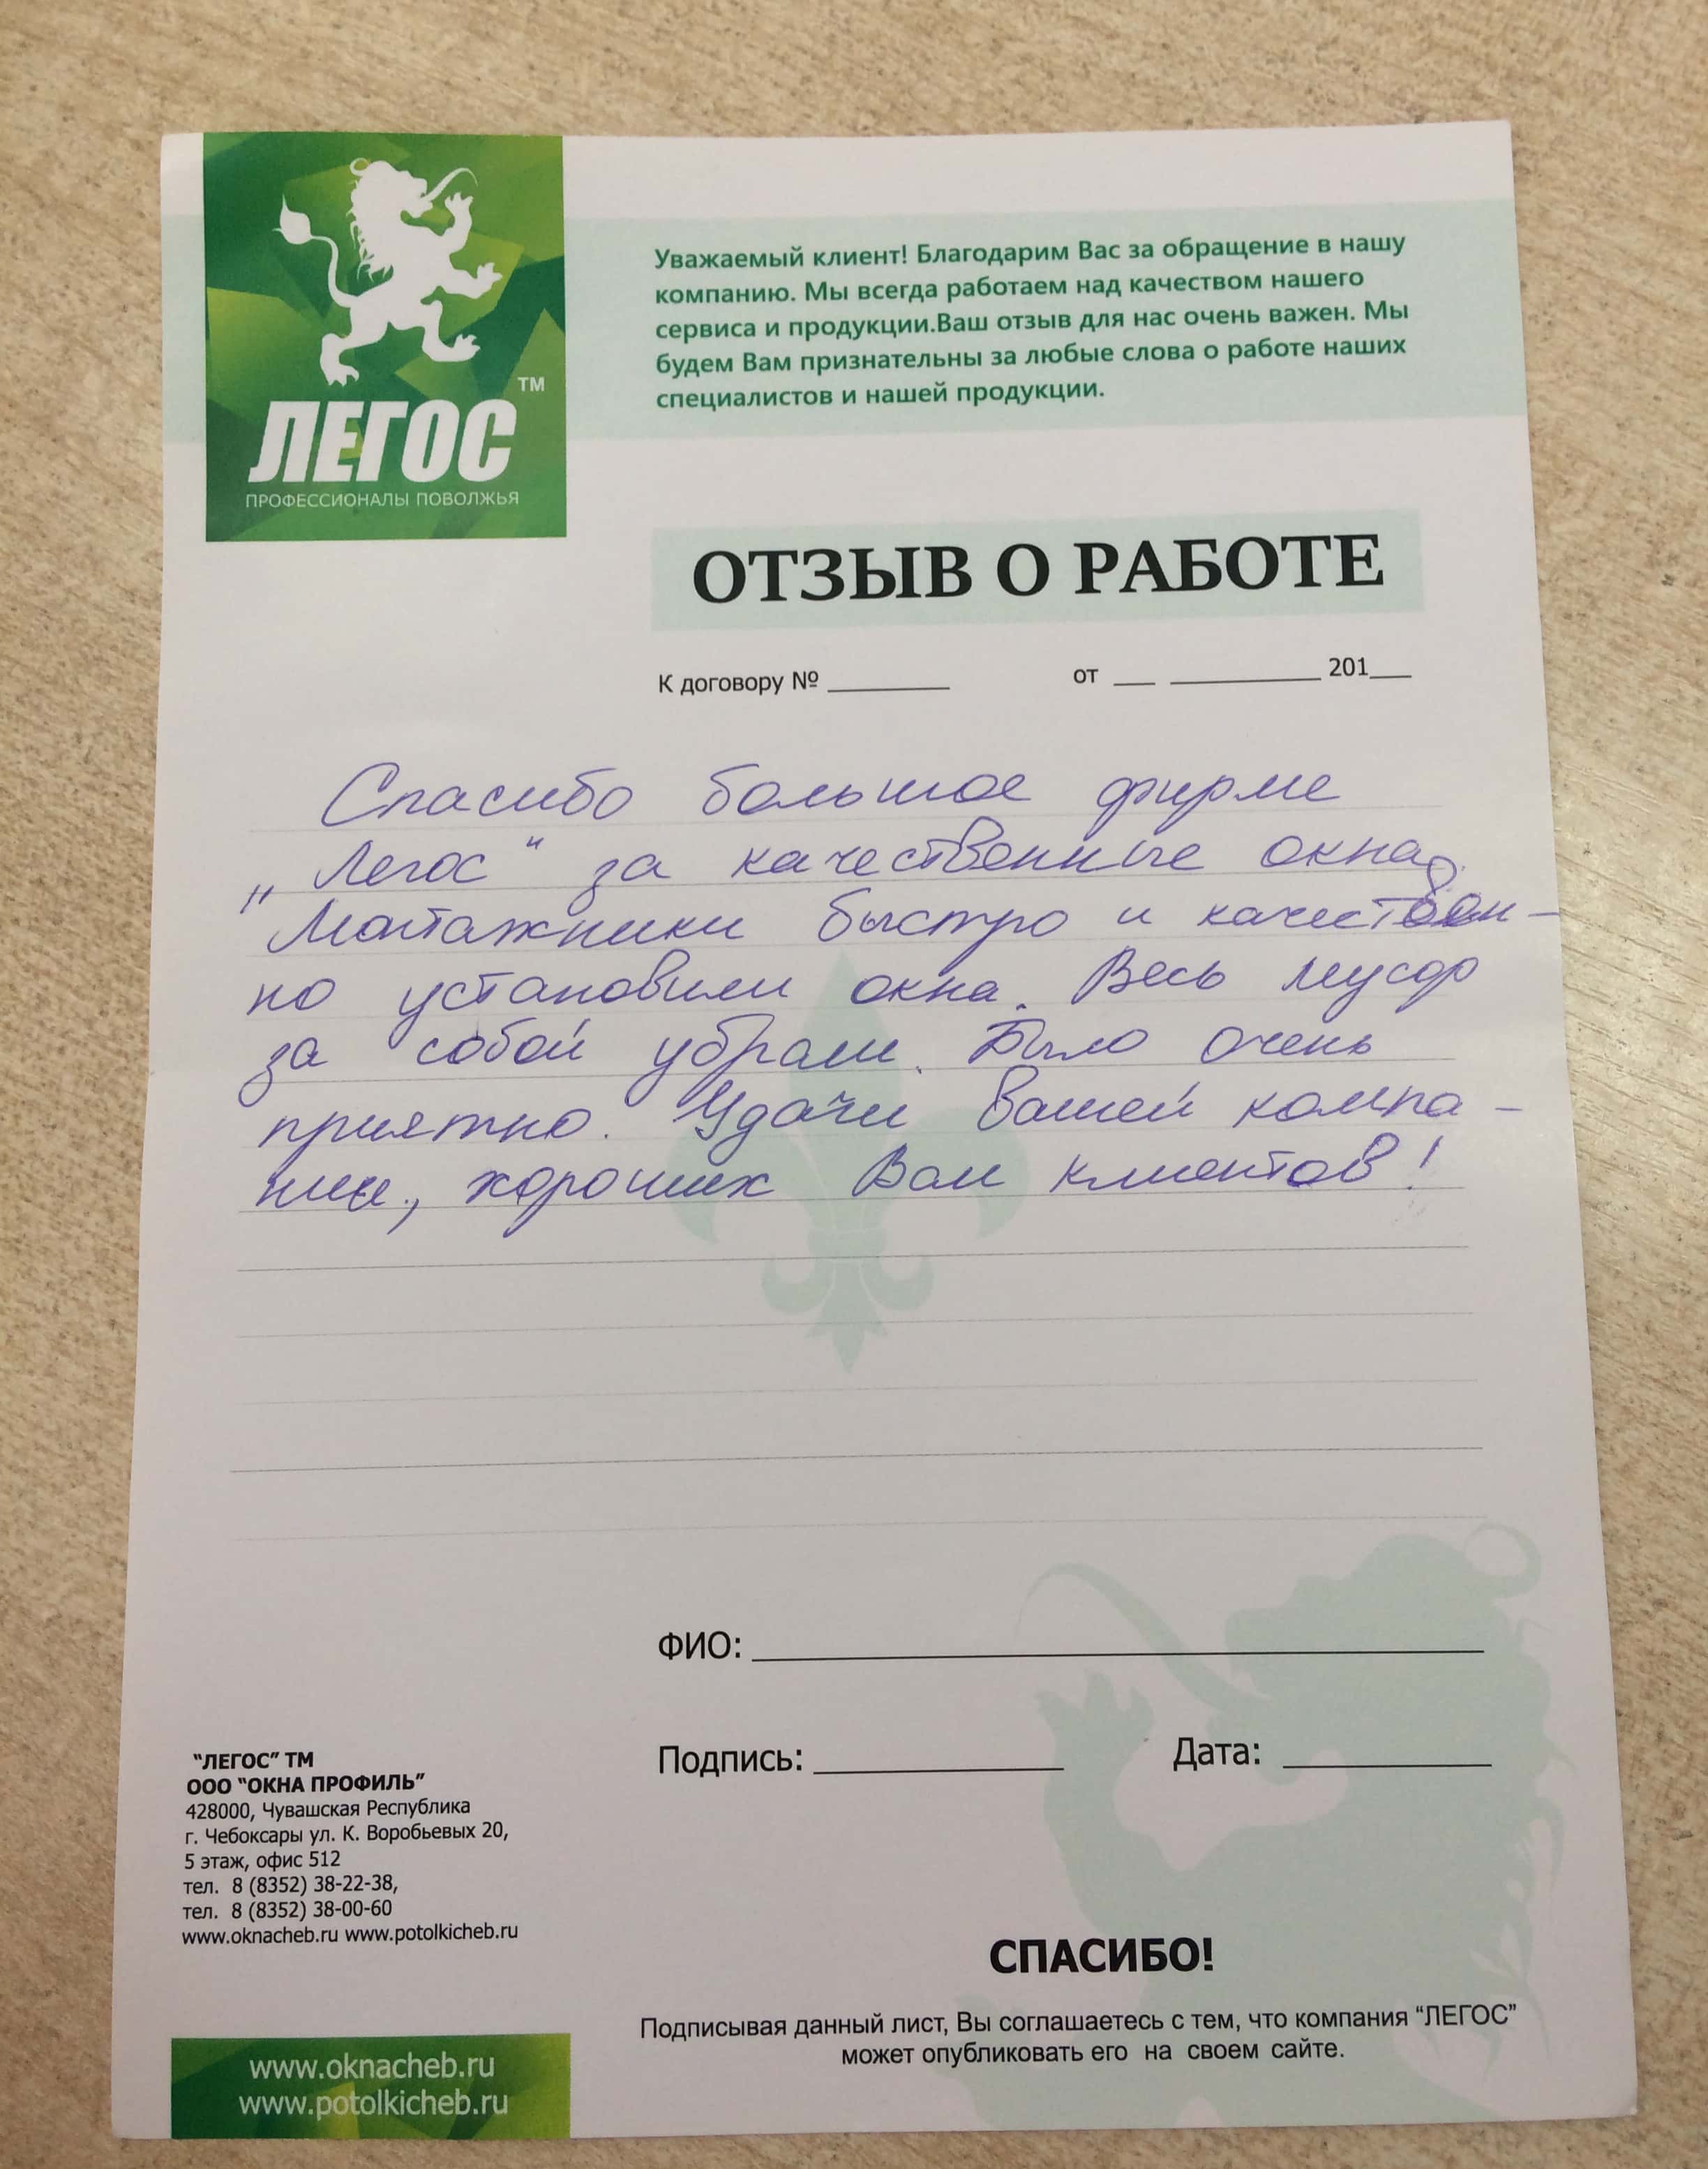 ЛЕГОС™
ПРОФЕССИОНАЛЫ ПОВОЛЖЬЯ
Уважаемый клиент! Благодарим Вас за обращение в нашу
компанию. Мы всегда работаем над качеством нашего
сервиса и продукции.Ваш отзыв для нас очень важен. Мы
будем Вам признательны за любые слова о работе наших
специалистов и нашей продукции.
ОТЗЫВ О РАБОТЕ
К договору № ________ от __ ________ 201__
Спасибо большое фирме
„Легос" за качественные окна.
Монтажники быстро и качествен-
но установили окна. Весь мусор
за собой убрали. Было очень
приятно. Удачи Вашей компа-
нии, хороших Вам клиентов!
ФИО: ________
Подпись: ________ Дата: ________
"ЛЕГОС" ТМ
ООО "ОКНА ПРОФИЛЬ"
428000, Чувашская Республика
г. Чебоксары ул. К. Воробьевых 20,
5 этаж, офис 512
тел. 8 (8352) 38-22-38,
тел. 8 (8352) 38-00-60
www.oknacheb.ru www.potolkicheb.ru
СПАСИБО!
Подписывая данный лист, Вы соглашаетесь с тем, что компания "ЛЕГОС"
может опубликовать его на своем сайте.
www.oknacheb.ru
www.potolkicheb.ru